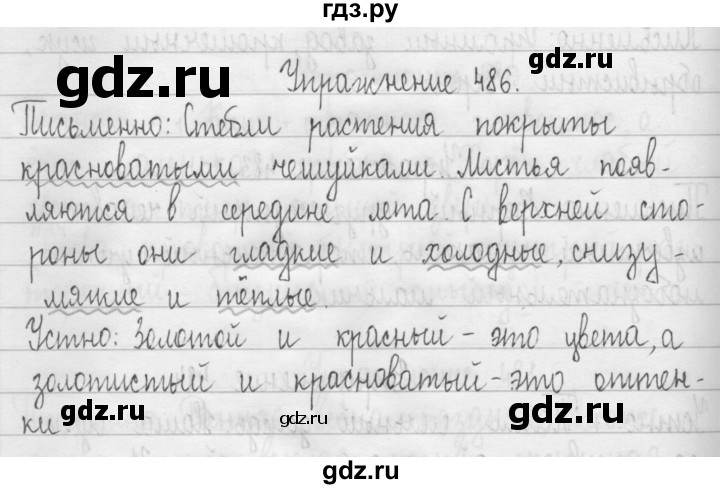 гдз.ру
gdz.ru
gdz.ru
Упражнение 486.
Письменно: Стебли растения покрыты
красноватыми чешуйками. Листья появ-
ляются в середине лета. С верхней сто-
роны они гладкие и холодные, снизу-
мягкие и тёплые.
Устно: Золотой и красный - это цвета, а
золотистый и красноватый - это оттен-
ки.
gdz.ru
gdz.ru
gdz.ru
gdz.ru